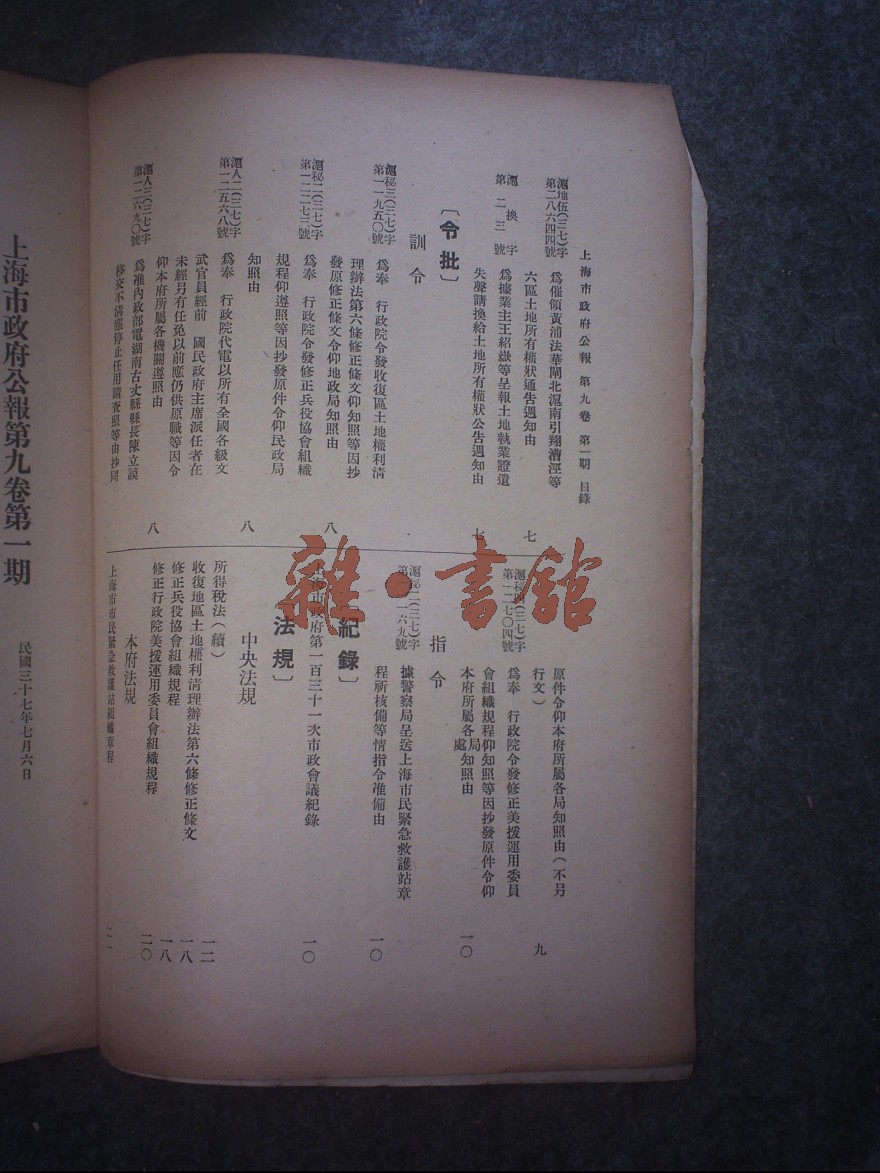 上海市政府公報 第九卷 第一期 目錄
滬地伍(三七)字
第二八六四四號
為催領黃浦法華閘北滬南引翔漕涇等
六區土地所有權狀通告週知由
七
滬換字
第二三號
為據業主王紹嶽等呈報土地執業證遺
失聲請換給土地所有權狀公告週知由
七
〔令批〕
訓令
滬秘三(三七)字
第一一九五〇號
為奉 行政院令發收復區土地權利清
理辦法第六條修正條文仰知照等因抄
發原修正條文令仰地政局知照由
八
滬秘二(三七)字
第一二二七三號
為奉 行政院令發修正兵役協會組織
規程仰遵照等因抄發原件令仰民政局
知照由
八
滬人二(三七)字
第一二五六八號
為奉 行政院代電以所有全國各級文
武官員經前 國民政府主席派任者在
未經另有任免以前應仍供原職等因令
仰本府所屬各機關遵照由
八
滬人三(三七)字
第一二六九〇號
為准內政部電湖南古丈縣縣長陳立謨
移交不清應停止任用請查照等由抄同
原件令仰本府所屬各局知照由(不另
行文)
九
滬秘四(三七)字
第一二七〇四號
為奉 行政院令發修正美援運用委員
會組織規程仰知照等因抄發原件令仰
本府所屬各局處知照由
一〇
指令
滬秘二(三七)字
一六九號
據警察局呈送上海市民緊急救護站章
程祈核備等情指令准備由
一〇
〔紀錄〕
上海市政府第一百三十一次市政會議紀錄
一〇
〔法規〕
中央法規
所得稅法(續)
一二
收復地區土地權利清理辦法第六條修正條文
一八
修正兵役協會組織規程
一八
修正行政院美援運用委員會組織規程
二〇
本府法規
上海市市民緊急救護站組織章程
二一
上海市政府公報第九卷第一期
民國三十七年七月六日
雜·書館